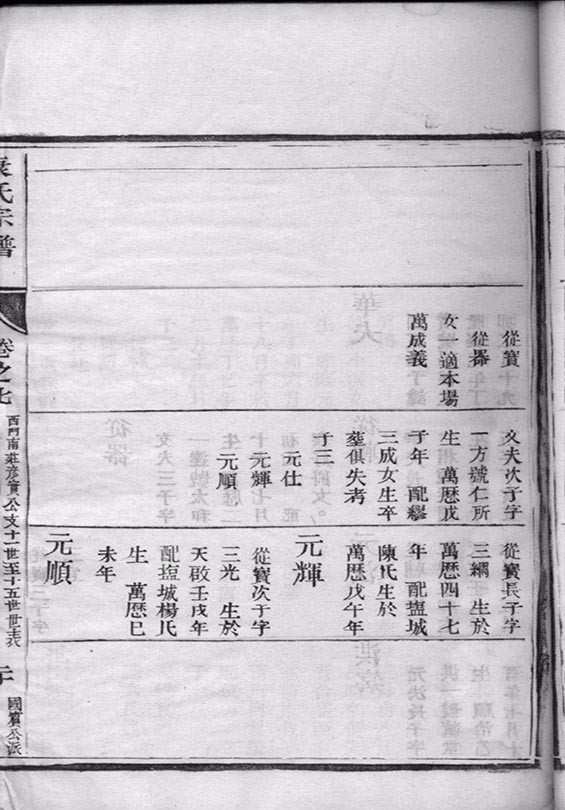 從寶十九
從器
女一適本場
萬成義
文夫次子字
一方號仁所
生　萬歷戊
子年　配繆
三成女生卒
葬俱失考
子三
元仕
元輝
元順
從寶長子字
三綱　生於
萬歷四十七
年　配塩城
陳氏生於
萬歷戊午年
元輝
從寶次子字
三光　生於
天啟壬戌年
配塩城楊氏
生　萬歷巳
未年
元順
袁氏宗譜
卷之七
西門南莊彦寶公支十一世至十五世世表
國寶公派